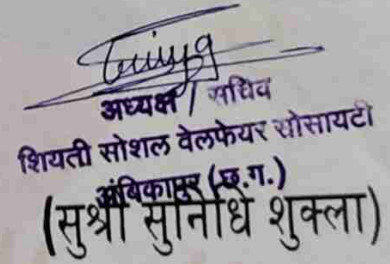 अध्यक्ष / सचिव
शियती सोशल वेलफेयर सोसायटी
अंबिकापुर (छ.ग.)
(सुश्री सुनिधि शुक्ला)